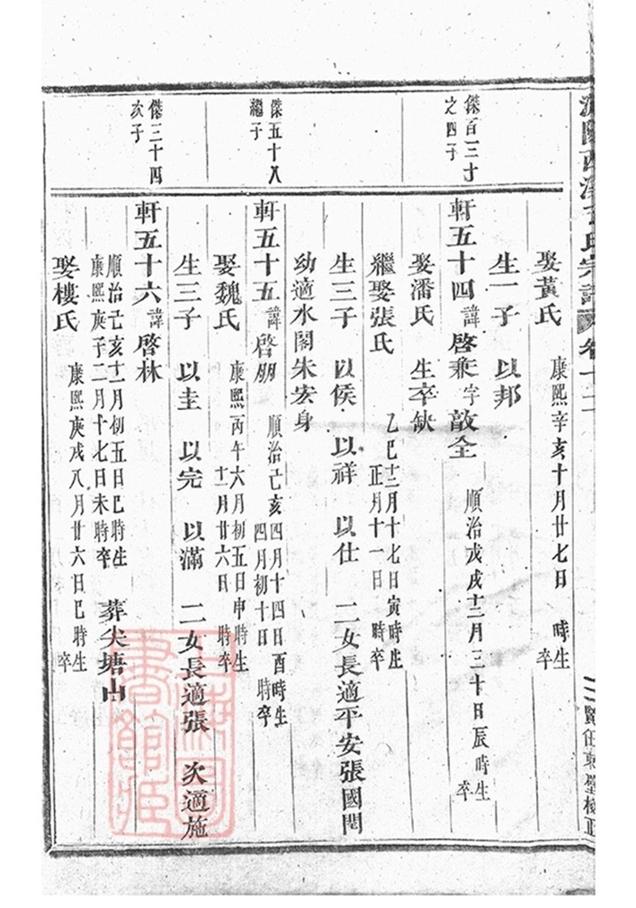 氏宗譜 卷十二
娶黃氏 康熙辛亥十月廿七日 時生 卒
生一子 以邦
傑百三寸之四子
軒五十四 諱啓秉字敔全 順治戊戌十二月三十日辰時生 卒
娶潘氏 生卒缺
繼娶張氏 乙巳十二月十七日寅時生 正月十一日 時卒
生三子 以侯 以祥 以仕 二女長適平安張國閏
幼適水閣朱宏身
傑五十八繼子
軒五十五 諱啓朋 順治己亥四月十四日酉時生 四月初十日 時卒
娶魏氏 康熙丙午六月初五日申時生 十一月廿六日 時卒
生三子 以圭 以完 以滿 二女長適張 次適施
傑三十四次子
軒五十六 諱啓林
順治己亥十一月初五日巳時生 康熙庚子二月十七日未時卒 葬尖塘山
娶樓氏 康熙庚戌八月廿六日巳時生 卒